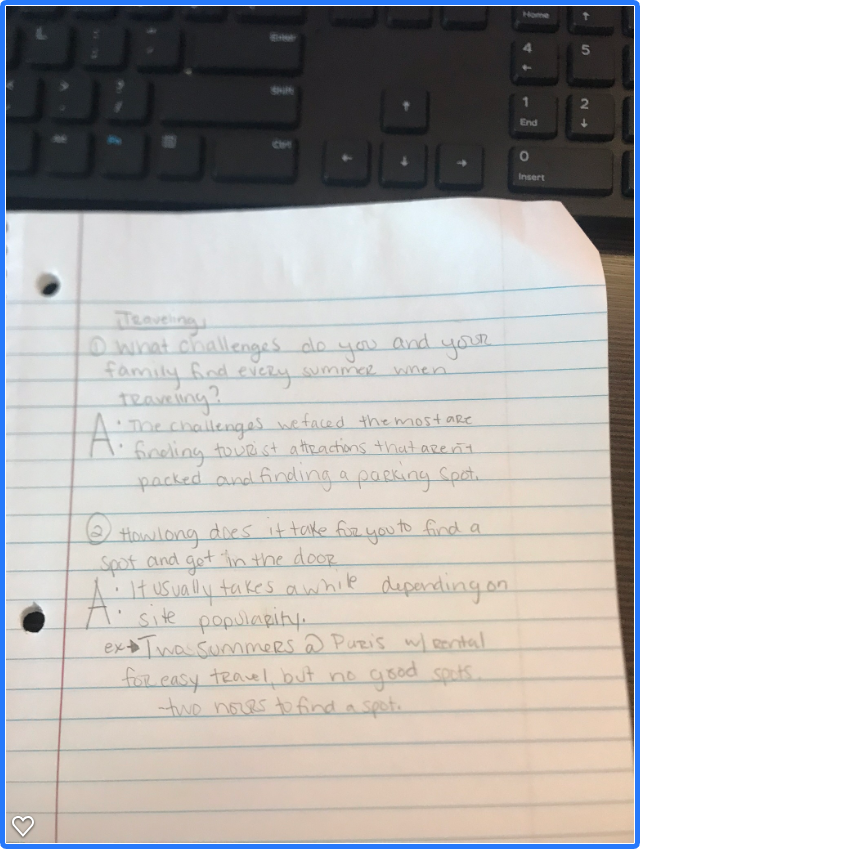 Home ↑
Enter 4 5
←
Shift ↑ 1 2
End ↓
Ctrl ← ↓ → 0
Insert
Traveling
① What challenges do you and your
family find every summer when
traveling?
A: The challenges we faced the most are
finding tourist attractions that aren't
packed and finding a parking spot.
② How long does it take for you to find a
spot and get in the door
A: It usually takes a while depending on
site popularity.
ex→ Two summers @ Paris w/ rental
for easy travel, but no good spots.
-two hours to find a spot.